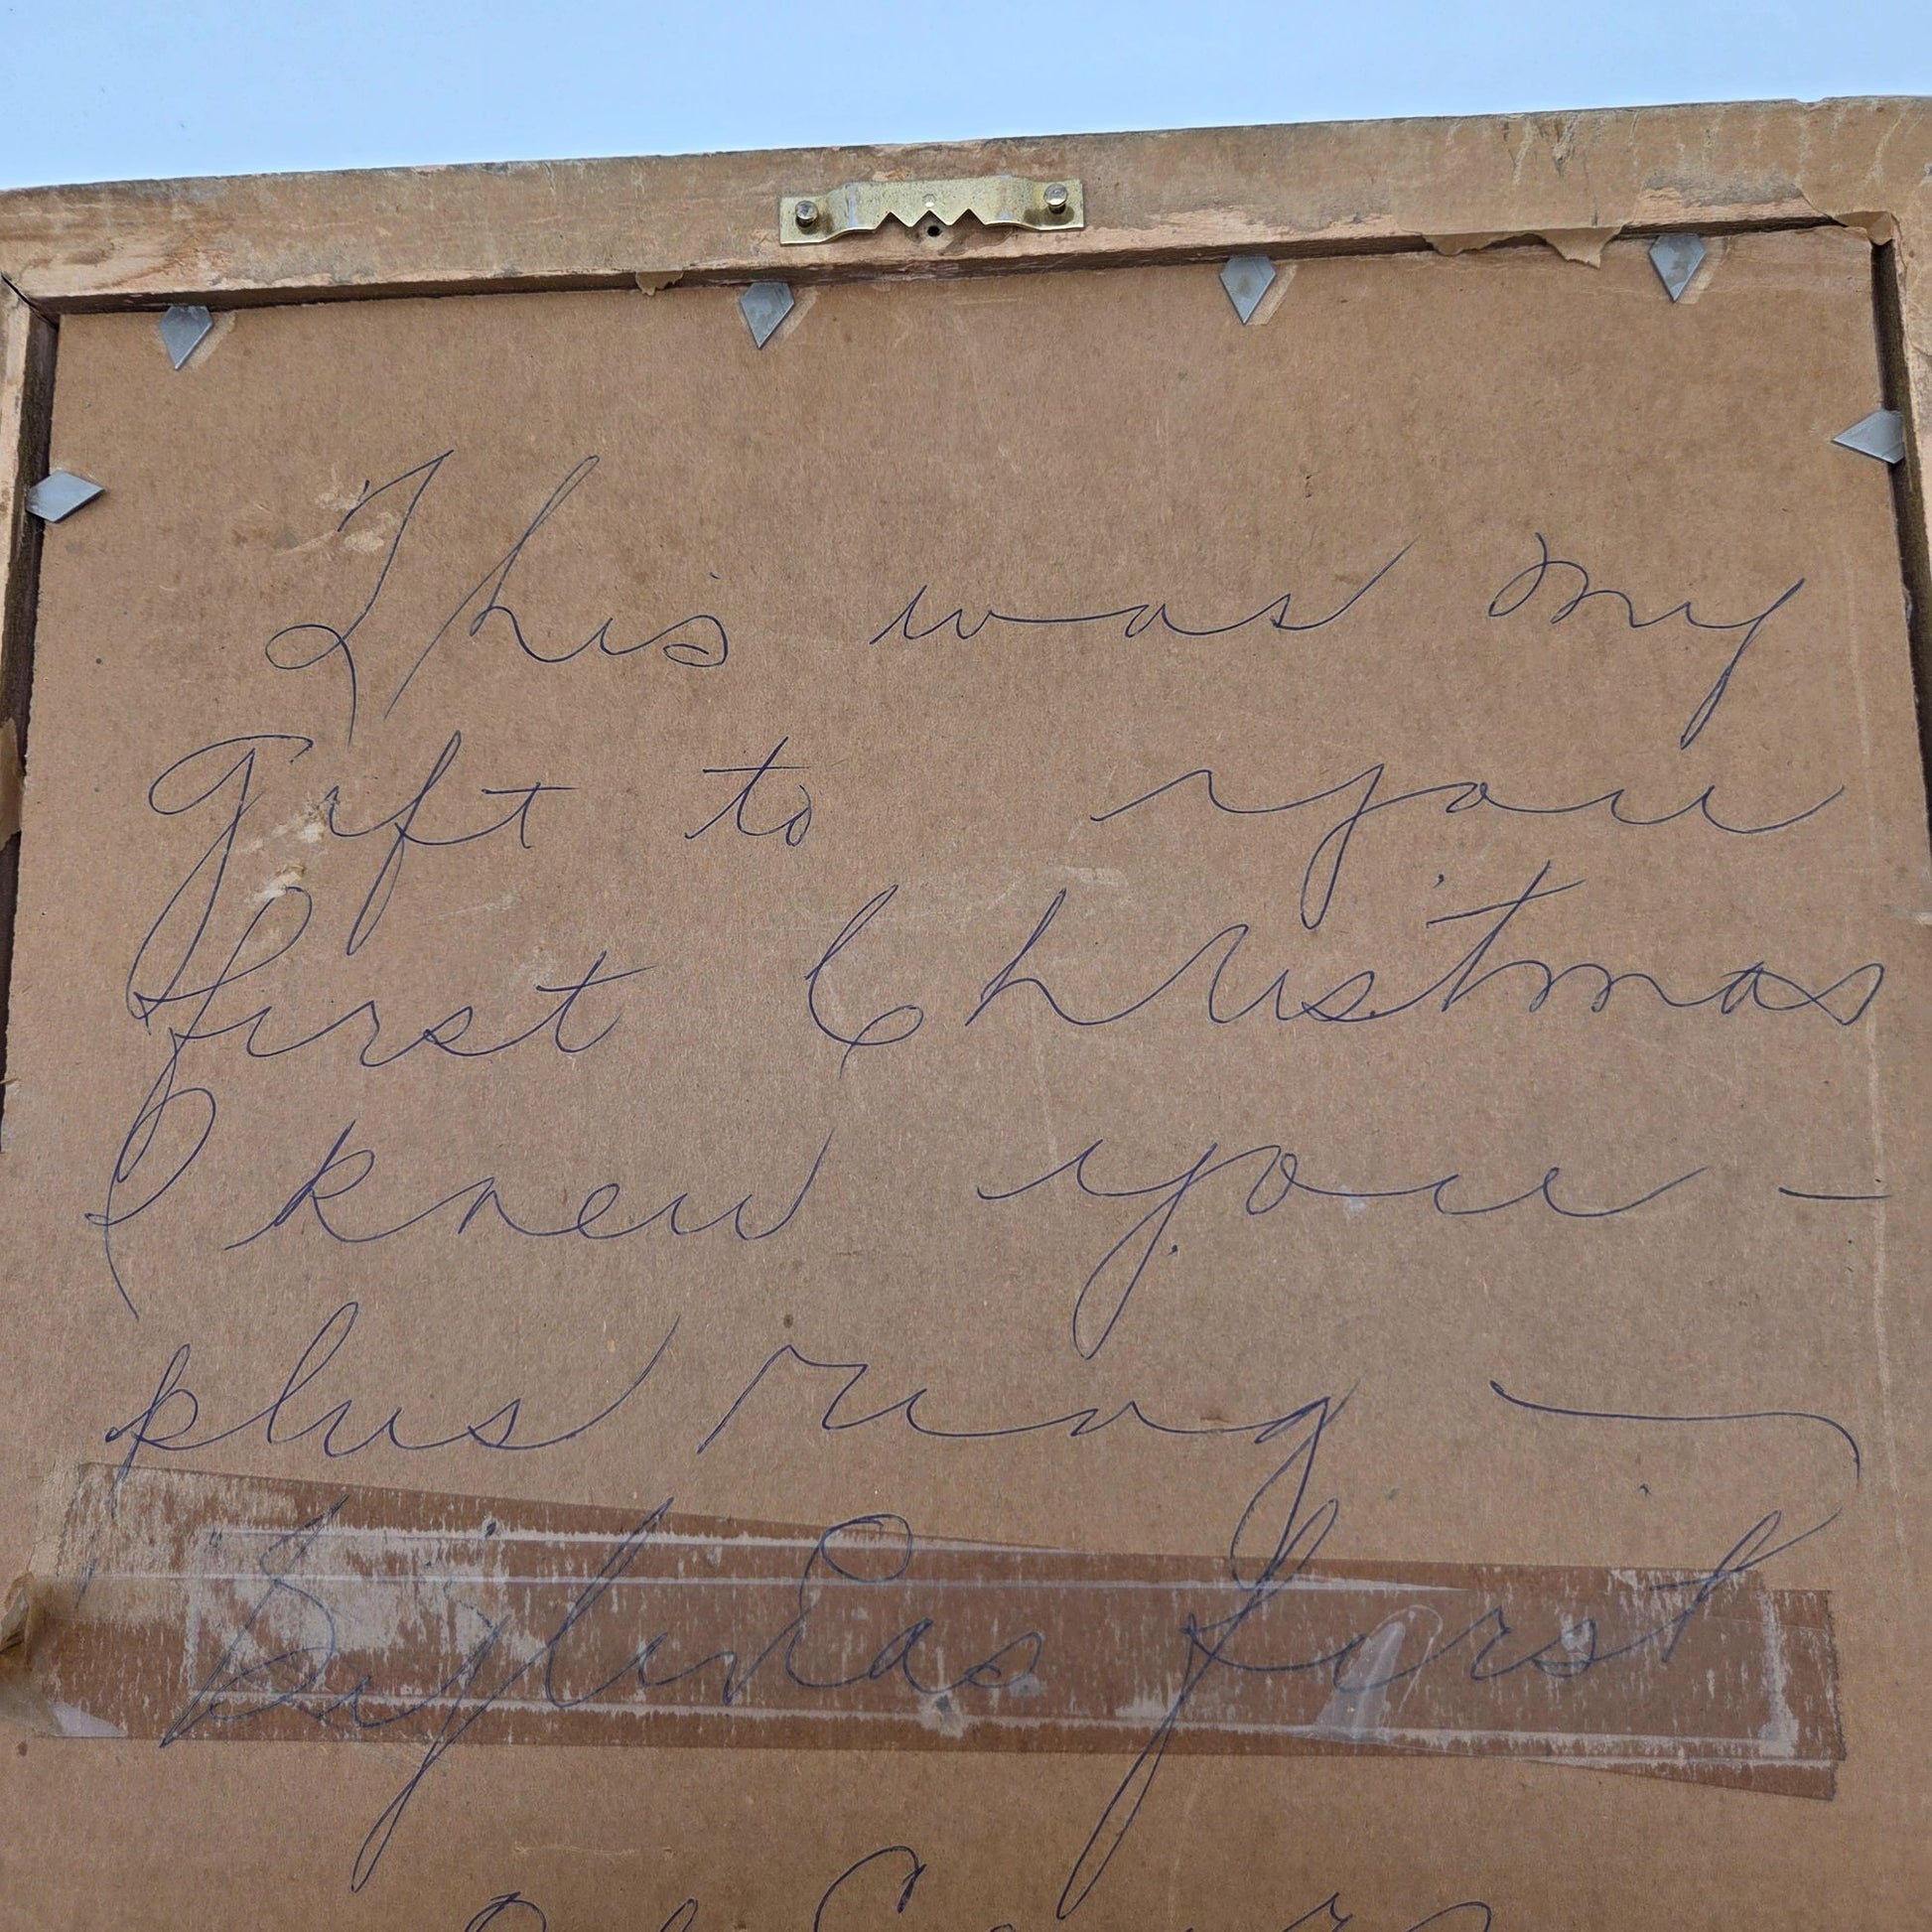 This was my
gift to you
first Christmas
I knew you —
plus ring —
first